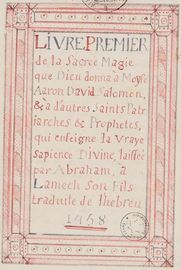 LIVRE PREMIER
de la Sacrée Magie
que Dieu donna à Moyse
Aaron David Salomon,
& à d'autres Saints Patri
arches & Prophetes,
qui enseigne la vraye
Sapience Divine, laissée
par Abraham, à
Lamech Son Fils
traduite de l'hebreu
1458